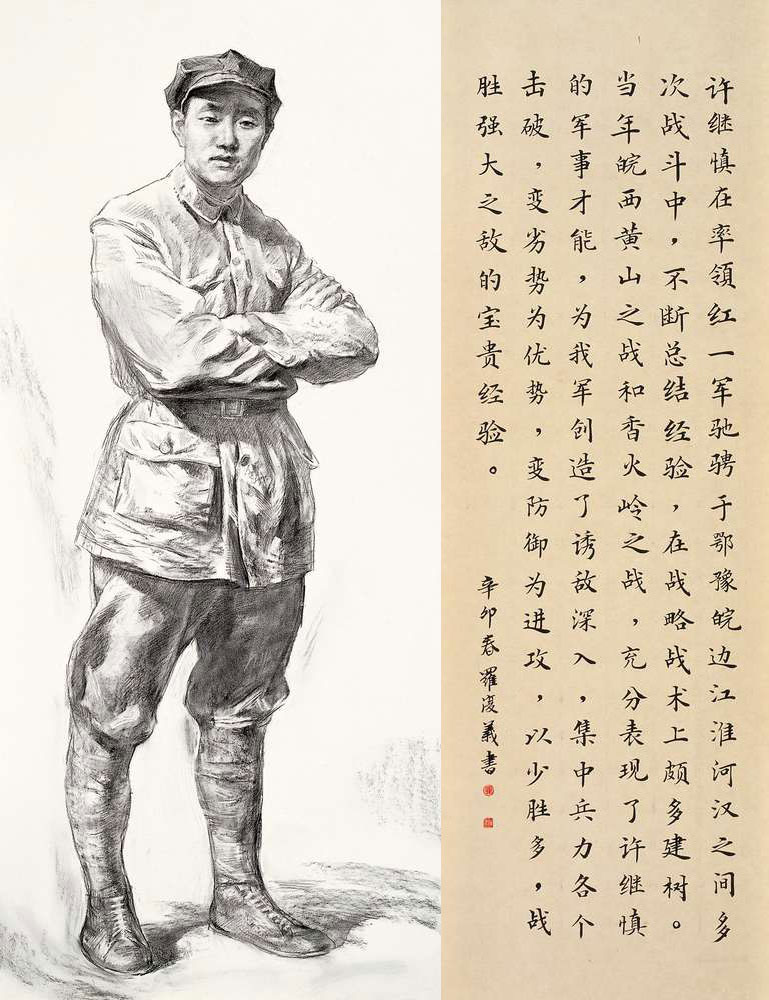 许继慎在率领红一军驰骋于鄂豫皖边江淮河汉之间多
次战斗中，不断总结经验，在战略战术上颇多建树。
当年皖西黄山之战和香火岭之战，充分表现了许继慎
的军事才能，为我军创造了诱敌深入，集中兵力各个
击破，变劣势为优势，变防御为进攻，以少胜多，战
胜强大之敌的宝贵经验。
辛卯春 羅 義書